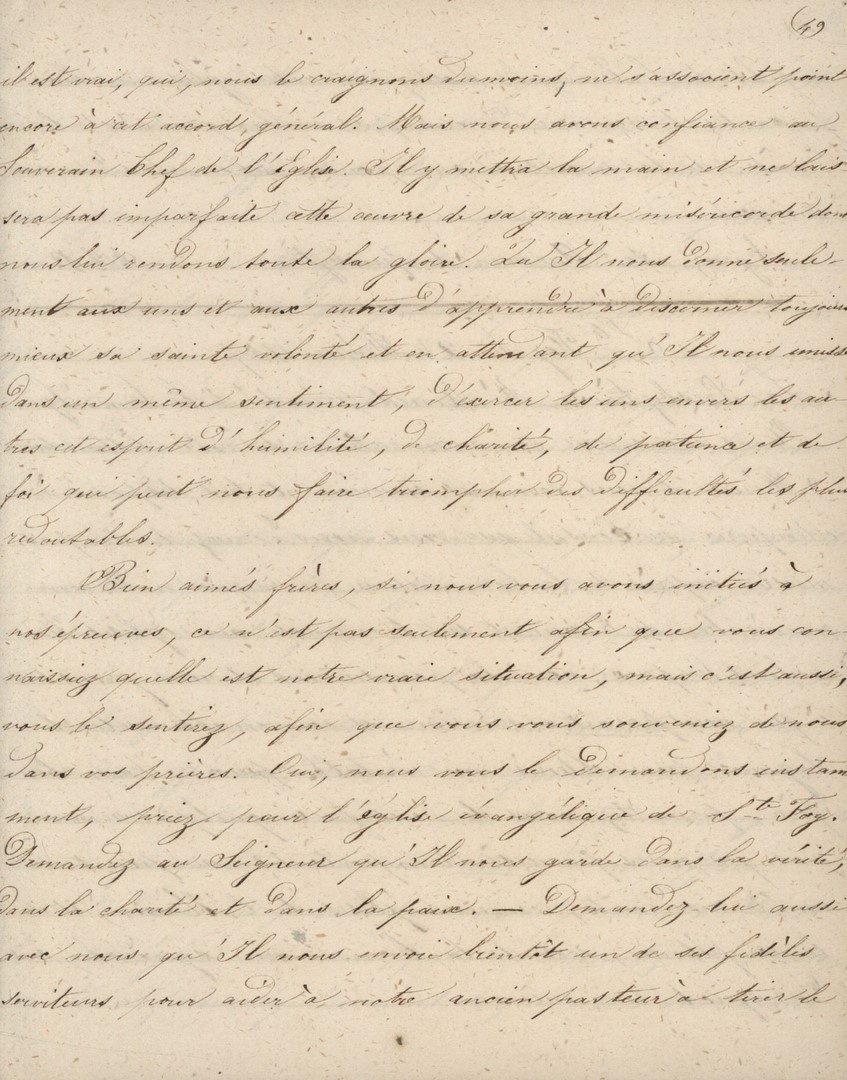 49
il est vrai, qui, nous le craignons du moins, ne s'associent point
encore à cet accord général. Mais nous avons confiance au
Souverain Chef de l'Eglise. Il y mettra la main et ne lais-
sera pas imparfaite cette œuvre de sa grande miséricorde dont
nous lui rendons toute la gloire. Qu'Il nous donne seule-
ment aux uns et aux autres d'apprendre à discerner toujours
mieux sa sainte volonté et en attendant qu'Il nous unisse
dans un même sentiment, d'exercer les uns envers les au-
tres cet esprit d'humilité, de charité, de patience et de
foi qui peut nous faire triompher des difficultés les plus
redoutables.
Bien aimés frères, si nous vous avons initiés à
nos épreuves, ce n'est pas seulement afin que vous con-
naissiez quelle est notre vraie situation, mais c'est aussi,
vous le sentirez, afin que vous vous souveniez de nous
dans vos prières. Oui, nous vous le demandons instam
ment, priez pour l'église évangélique de Ste Foy.
Demandez au Seigneur qu'Il nous garde dans la vérité,
dans la charité et dans la paix. — Demandez lui aussi
avec nous qu'Il nous envoie bientôt un de ses fidèles
serviteurs pour aider à notre ancien pasteur à tirer le